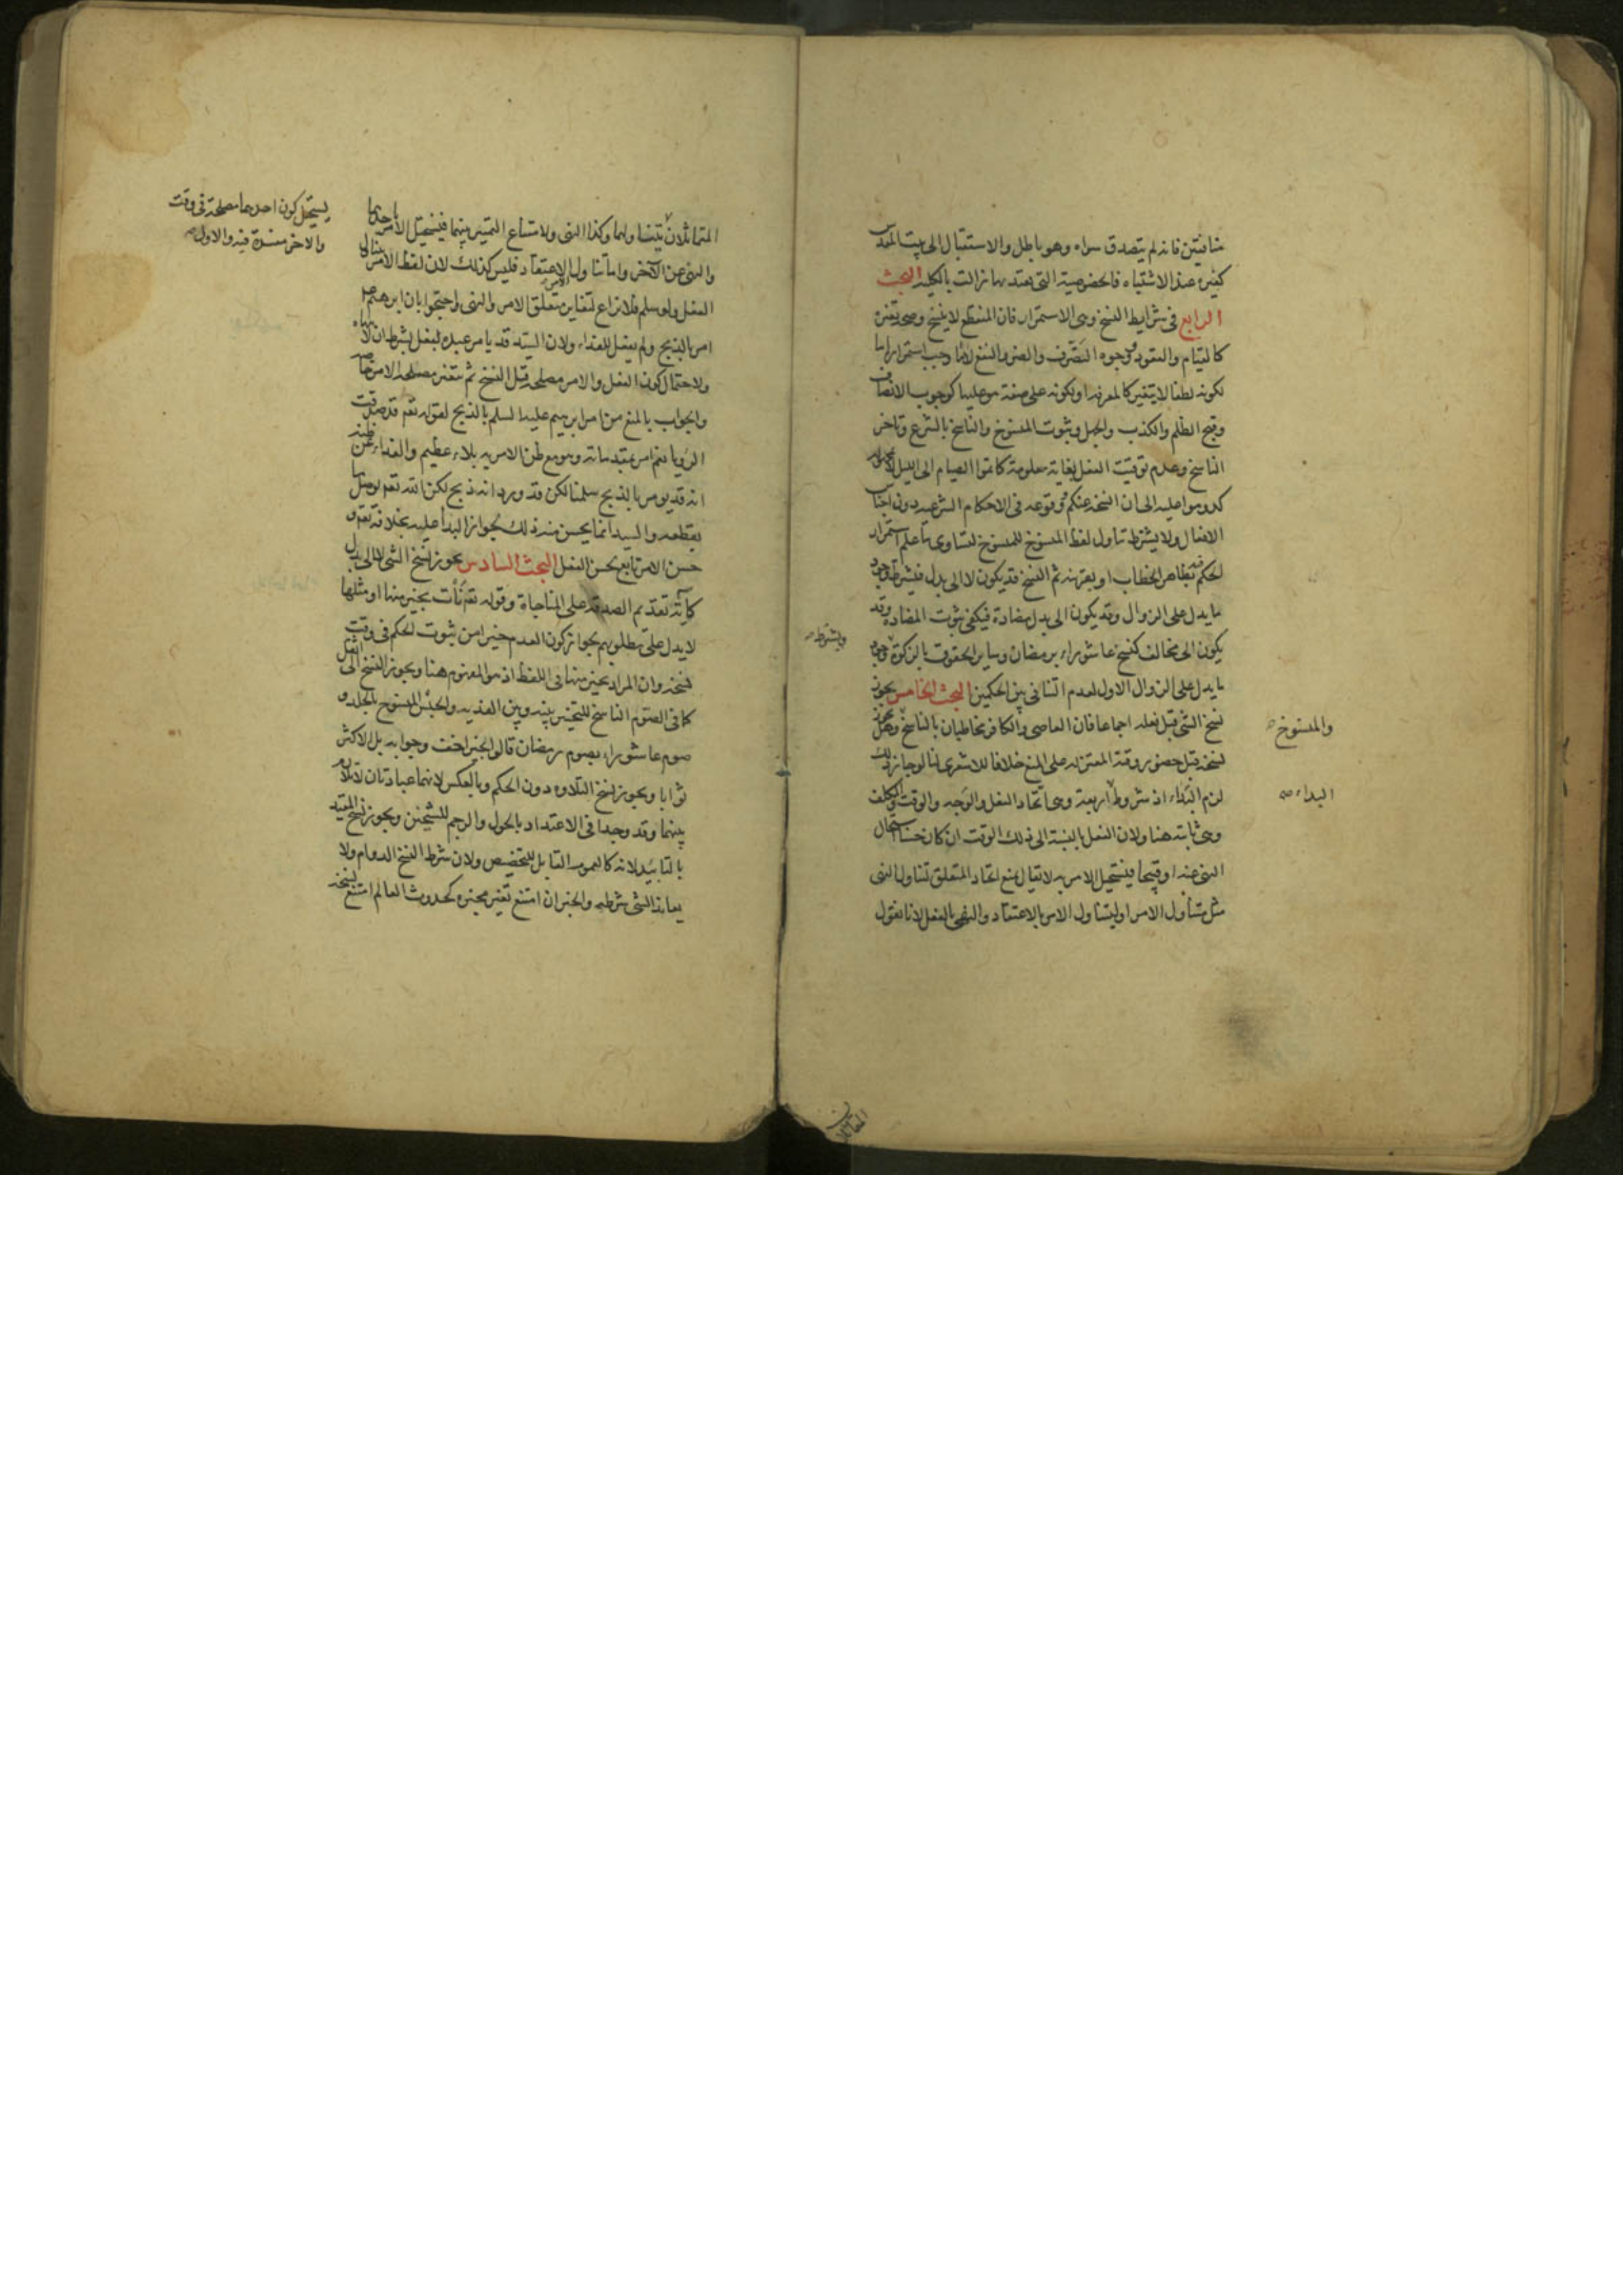 منافقين فانه لم يتصدق سواه وهو باطل والاستقبال الى بيت المقدس
كغيره عند الاشتباه فالخصوصية التى يعتد بها زالت بالكلية البحث
الرابع فى شرايط النسخ وهى الاستمرار فان المنقطع لا ينسخ وصحة تغيره
كالقيام والقعود ووجوه التصرف والضر والنفع لا ما وجب استمراره اما
لكونه لطفا لا يتغير كالمعرفة او لكونه على صفة هو عليها كوجوب الانصاف
وقبح الظلم والكذب والجهل وثبوت المنسوخ والناسخ بالشرع وتاخر
الناسخ وعدم توقيت الفعل بغاية معلومة كاتموا الصيام الى الليل لا
كدوموا عليه الى ان انسخه عنكم ووقوعه فى الاحكام الشرعية دون اجناس
الافعال ولا يشترط تناول لفظ المنسوخ للمنسوخ لتساوى ما علم استمرار
الحكم فيه بظاهر الخطاب او بقرينة ثم النسخ قد يكون لا الى بدل فيشترط وجود
ما يدل على الزوال وقد يكون الى بدل مضادة فيكفى ثبوت المضادة وقد
يكون الى مخالف كنسخ عاشوراء برمضان وساير الحقوق بالزكوة وجود
ويشترط صح
ما يدل على الزوال الاول لعدم التنافى بين الحكمين البحث الخامس يجوز
نسخ الشئ قبل فعله اجماعا فان العاصى والكافر مخاطبان بالناسخ وهل يجوز
والمنسوخ صح
نسخه قبل حضور وقته المعتزلة على المنع خلافا للاشعرى لنا لو جاز ذلك
لزم البداء اذ شروط اربعة وهى اتحاد الفعل والوجه والوقت والمكلف
البداء صح
وهى ثابتة هنا ولان الفعل بالنسبة الى ذلك الوقت ان كان حسنا استحال
النهى عنه او قبيحا فيستحيل الامر به لا يقال نمنع اتحاد المتعلق لتناول النهى
مثل متناول الامر او ليتناول الامر بالاعتقاد والنهى بالفعل لانا نقول
المتماثلان
المتماثلان يتناولهما وكذا النهى ولامتناع التميز بينهما فيستحيل الامر باحدهما
يستحيل كون احدهما مصلحة فى وقت
والاخر مفسدة فيه والاول صح
والنهى عن الآخر واما تناول الاعتقاد فليس كذلك لان لفظ الامر يتناول
الفعل ولو سلم فلا نزاع لتغاير متعلق الامر والنهى واحتجوا بان ابرهيم ع
امر بالذبح ولم يفعل للفداء ولان السيد قد يامر عبده بفعل بشرط ان لا ينهاه
ولاحتمال كون الفعل والامر مصلحة قبل النسخ ثم تتغير مصلحة الامر خاصة
والجواب بالمنع من امر ابرهيم عليه السلم بالذبح لقوله تعم قد صدقت
الرؤيا نعم امر بمقدماته وهو مع ظن الامر به بلاء عظيم والفداء عن ظنه
انه قد يومر بالذبح سلمنا لكن قد ورد انه ذبح لكن الله تعم يوصل ما
يقطعه والسيد انما يحسن منه ذلك لجواز البدأ عليه بخلافه تعم و
حسن الامر تابع لحسن الفعل البحث السادس يجوز نسخ الشئ لا الى بدل
كآية تقديم الصدقة على المناجاة وقوله تعم نأت بخير منها او مثلها
لا يدل على مطلوبهم بجواز كون العدم خيرا من ثبوت الحكم فى وقت
نسخه وان المراد بخير منها فى اللفظ اذ هو المفهوم هنا ويجوز النسخ الى الاثقل
كما فى الصوم الناسخ للتخيير بينه وبين الفدية والحبس المنسوخ بالجلد و
صوم عاشوراء بصوم رمضان قالوا الخير اخف وجوابه بل الاكثر
ثوابا ويجوز نسخ التلاوة دون الحكم وبالعكس لانهما عبادتان لا تلازم
بينهما وقد وجدا فى الاعتداد بالحول والرجم للشيخين ويجوز نسخ المقيد
بالتابيد لانه كالعموم القابل للتخصيص ولان شرط النسخ الدوام ولا
يعاند الشئ شرطه والخبر ان امتنع تغير مخبره كحدوث العالم امتنع نسخه